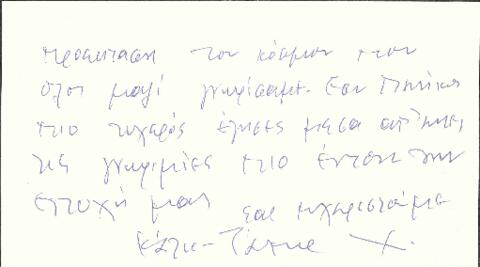 προέκταση του κόσμου που
όλοι μαζί γνωρίσαμε. Εσύ
πιο τυχερός έζησες μέσα από
τις γνωριμίες πιο έντονα την
εποχή μας
σας ευχαριστούμε
Κάτια -